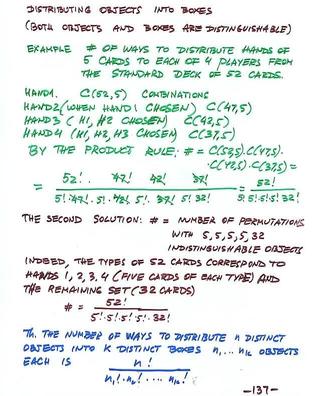 DISTRIBUTING OBJECTS INTO BOXES
(BOTH OBJECTS AND BOXES ARE DISTINGUISHABLE)
EXAMPLE # OF WAYS TO DISTRIBUTE HANDS OF
5 CARDS TO EACH OF 4 PLAYERS FROM
THE STANDARD DECK OF 52 CARDS.
HAND1. C(52,5) COMBINATIONS
HAND2 (WHEN HAND1 CHOSEN) C(47,5)
HAND3 (H1, H2 CHOSEN) C(42,5)
HAND4 (H1, H2, H3 CHOSEN) C(37,5)
BY THE PRODUCT RULE: # = C(52,5).C(47,5).
.C(42,5).C(37,5) =
= 52! 47! 42! 37! / 5!.47!. 5!.42! 5! 37! 5! 32! = 52! / 5!5!5!5! 32!
THE SECOND SOLUTION: # = NUMBER OF PERMUTATIONS
WITH 5, 5, 5, 5, 32
INDISTINGUISHABLE OBJECTS
INDEED, THE TYPES OF 52 CARDS CORRESPOND TO
HANDS 1, 2, 3, 4 (FIVE CARDS OF EACH TYPE) AND
THE REMAINING SET (32 CARDS)
# = 52! / 5!.5!.5!.5!.32!
Th. THE NUMBER OF WAYS TO DISTRIBUTE n DISTINCT
OBJECTS INTO K DISTINCT BOXES n1,... nk OBJECTS
EACH IS n! / n1!.n2! .... nk!
-137-